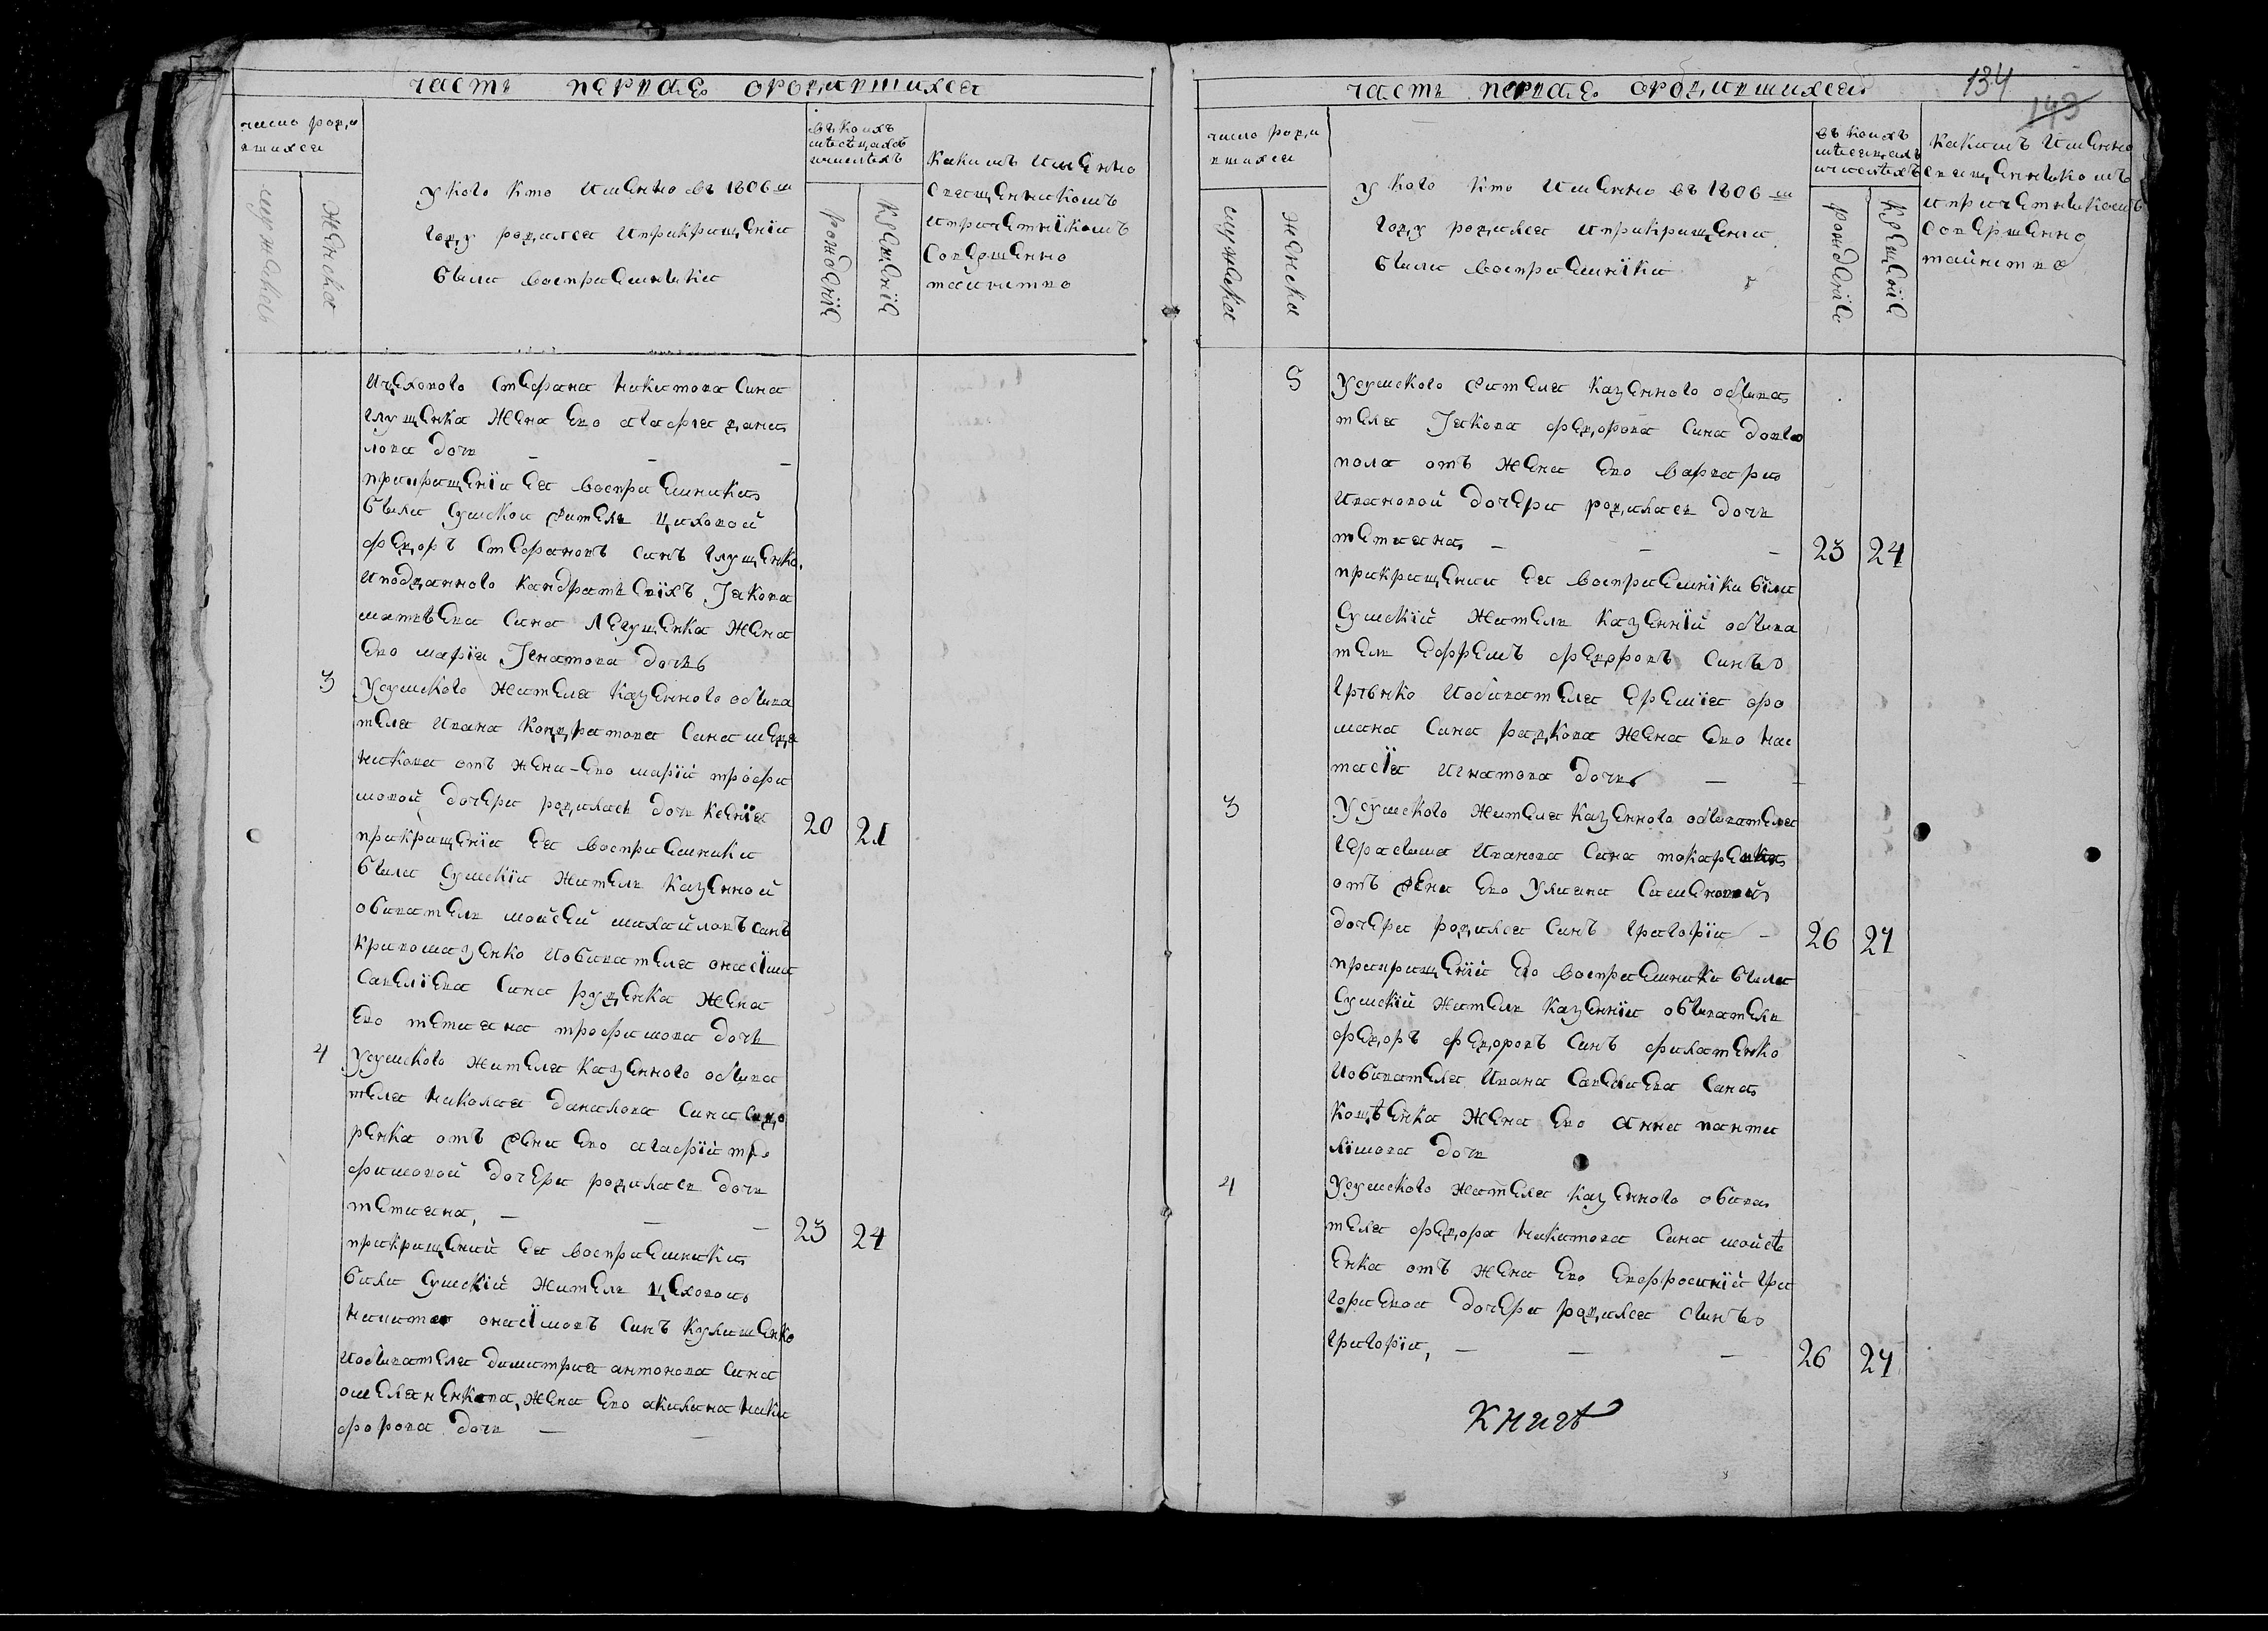 часть первая ородившихся
число роди
вшихся
мужеска
женска
у кого кто имянно въ 1806 м
году родился иприкрищении
были восприемники
въ коихъ
месецахъ
ичислехъ
рождения
крещения
какимъ имянно
священникомъ
ипричетникомъ
совершенно
таинство
ицехового стефана никитова сина
глущенка жена ево агафия дани
лова дочь
прикрищении ея восприемники
были сумскои житель цеховой
федоръ стефановъ синъ глущенко
иподданного кандратьевихъ Iякова
матвева сина легущенка жена
ево мария Iгнатова дочь
3 Усумского жителя казенного обива
теля ивана кондратова сина шеде
никова отъ жени ево марии трофи
мовой дочери родилась дочь ксения 20 21
прикрищении ея восприемники
были сумский житель казенной
обиватель мойсей михайловъ синъ
кривомазенко иобивателя онисима
савелiева сина руденка жена
ево тетияна трофимова дочь
4 Усумского жителя казенного обива
теля николая данилова сина сидо
ренка отъ жени ево агафии тро
фимовой дочери родилась дочь
тетияна, 23 24
прикрищении ея восприемники
били сумский житель цеховой
онисимовъ синъ кулишенко
иобивателя димитрия антонова сина
омеляненкова, жена ево акилина ники
форова дочь
часть первая ородившихся
134
143
число роди
вшихся
мужеска
женска
у кого кто имянно въ 1806 м
году родился иприкрищении
были восприемники
въ коихъ
месецахъ
ичислехъ
рождение
крещение
какимъ имянно
священникомъ
ипричетникомъ
совершенно
таинство
5 Усумского жителя казенного обива
теля Iякова федорова сина довго
пола отъ жени ево варвари
ивановой дочери родилась дочь
тетияна 23 24
прикрищении ея восприемники били
сумский житель казенний обива
тель ефремъ федоровъ синъ
гринко иобивателя еремия ро
мана сина радкова жена ево нас
тасiя игнатова дочь
3 Усумского жителя казенного обивателя
герасима иванова сина токаренка
отъ жени ево улияни семеновой
дочери родился синъ григории 26 27
прикрищении ево восприемники били
сумский житель казенний обиватель
федоръ федоровъ синъ филатенко
иобивателя ивана савелиева сина
жена ево анна панти
лiмова дочь
4 Усумского жителя казенного обива
теля федора никитова сина мойсе
енка отъ жени ево евфросинии гри
гориевой дочери родился синъ
григории, 26 27
книг